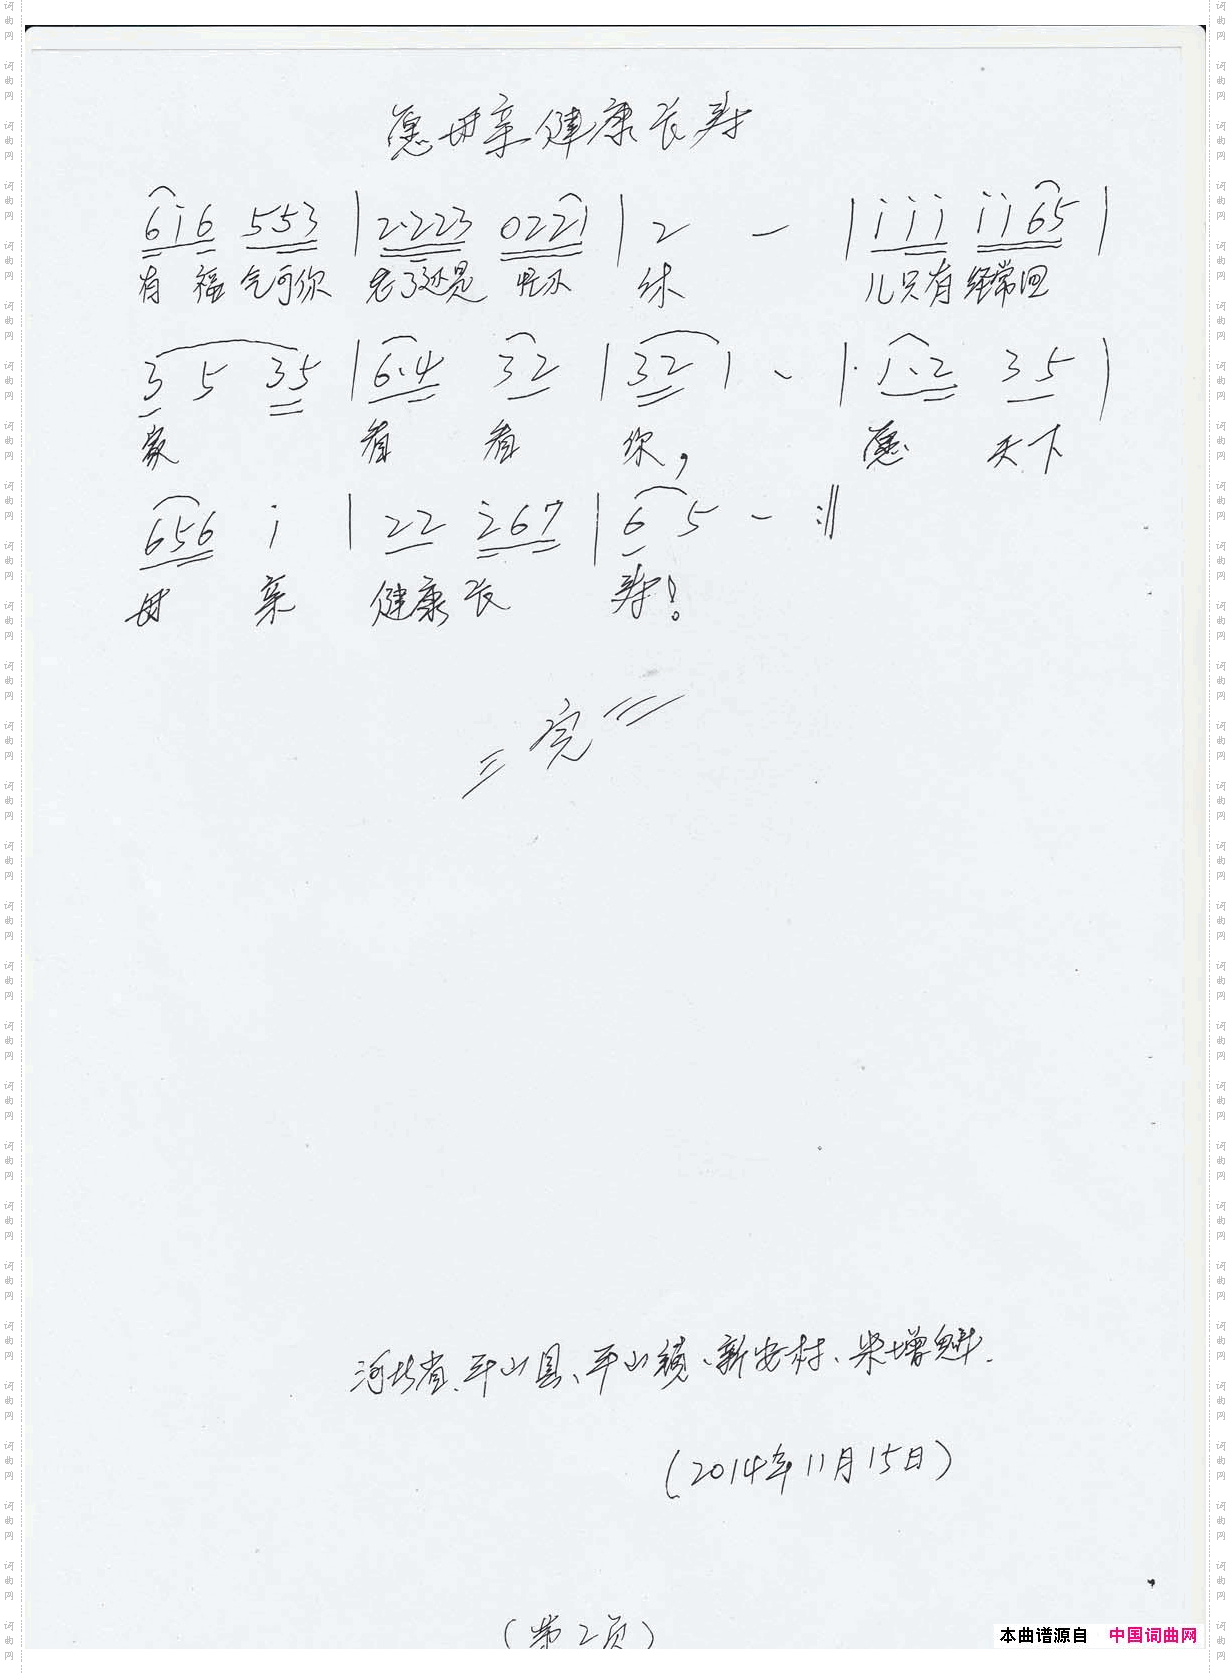 愿母亲健康长寿
6 i 6 5 5 3 | 2·2 2 3 0 2 2 1 | 2 - | i i i i i 6 5 |
有 福 气可你 老了还是 忙不 休 儿只有经常回
3 5 3 5 | 6·4 3 2 | 3 2 1 - | 1·2 3 5 |
家 看 看 你, 愿 天下
6 5 6 i | 2 2 2 6 7 | 6 5 - :||
母 亲 健康 长 寿!
= 完 =
河北省、平山县、平山镇、新安村、柴增
(2014年11月15日)
(第2页)
本曲谱源自 中国词曲网